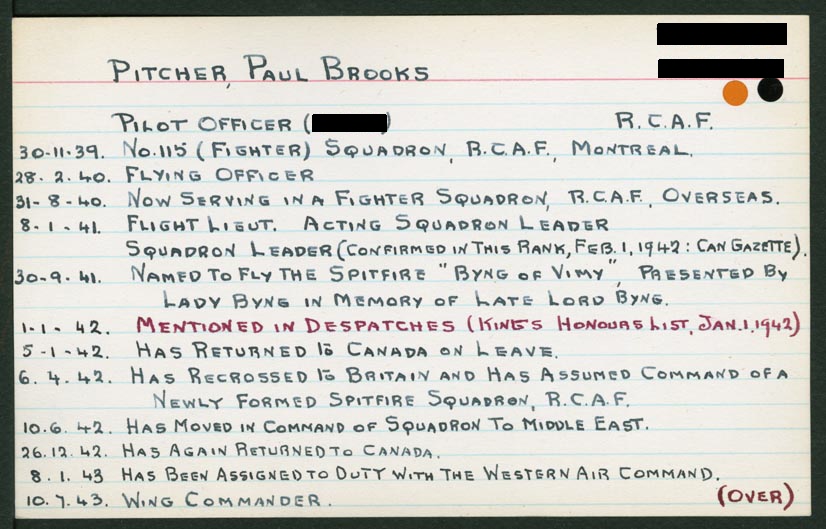 PITCHER, PAUL BROOKS
PILOT OFFICER ( ) R.C.A.F.
30-11-39. NO.115 (FIGHTER) SQUADRON, R.C.A.F., MONTREAL.
28. 2. 40. FLYING OFFICER
31-8-40. NOW SERVING IN A FIGHTER SQUADRON, R.C.A.F., OVERSEAS.
8-1-41. FLIGHT LIEUT. ACTING SQUADRON LEADER
SQUADRON LEADER (CONFIRMED IN THIS RANK, FEB. 1, 1942: CAN GAZETTE).
30-9-41. NAMED TO FLY THE SPITFIRE "BYNG OF VIMY", PRESENTED BY
LADY BYNG IN MEMORY OF LATE LORD BYNG.
1-1-42. MENTIONED IN DESPATCHES (KING'S HONOURS LIST, JAN.1,1942)
5-1-42. HAS RETURNED TO CANADA ON LEAVE.
6.4.42. HAS RECROSSED TO BRITAIN AND HAS ASSUMED COMMAND OF A
NEWLY FORMED SPITFIRE SQUADRON, R.C.A.F.
10.6.42. HAS MOVED IN COMMAND OF SQUADRON TO MIDDLE EAST.
26.12.42. HAS AGAIN RETURNED TO CANADA.
8.1.43 HAS BEEN ASSIGNED TO DUTY WITH THE WESTERN AIR COMMAND.
10.7.43. WING COMMANDER. (OVER)